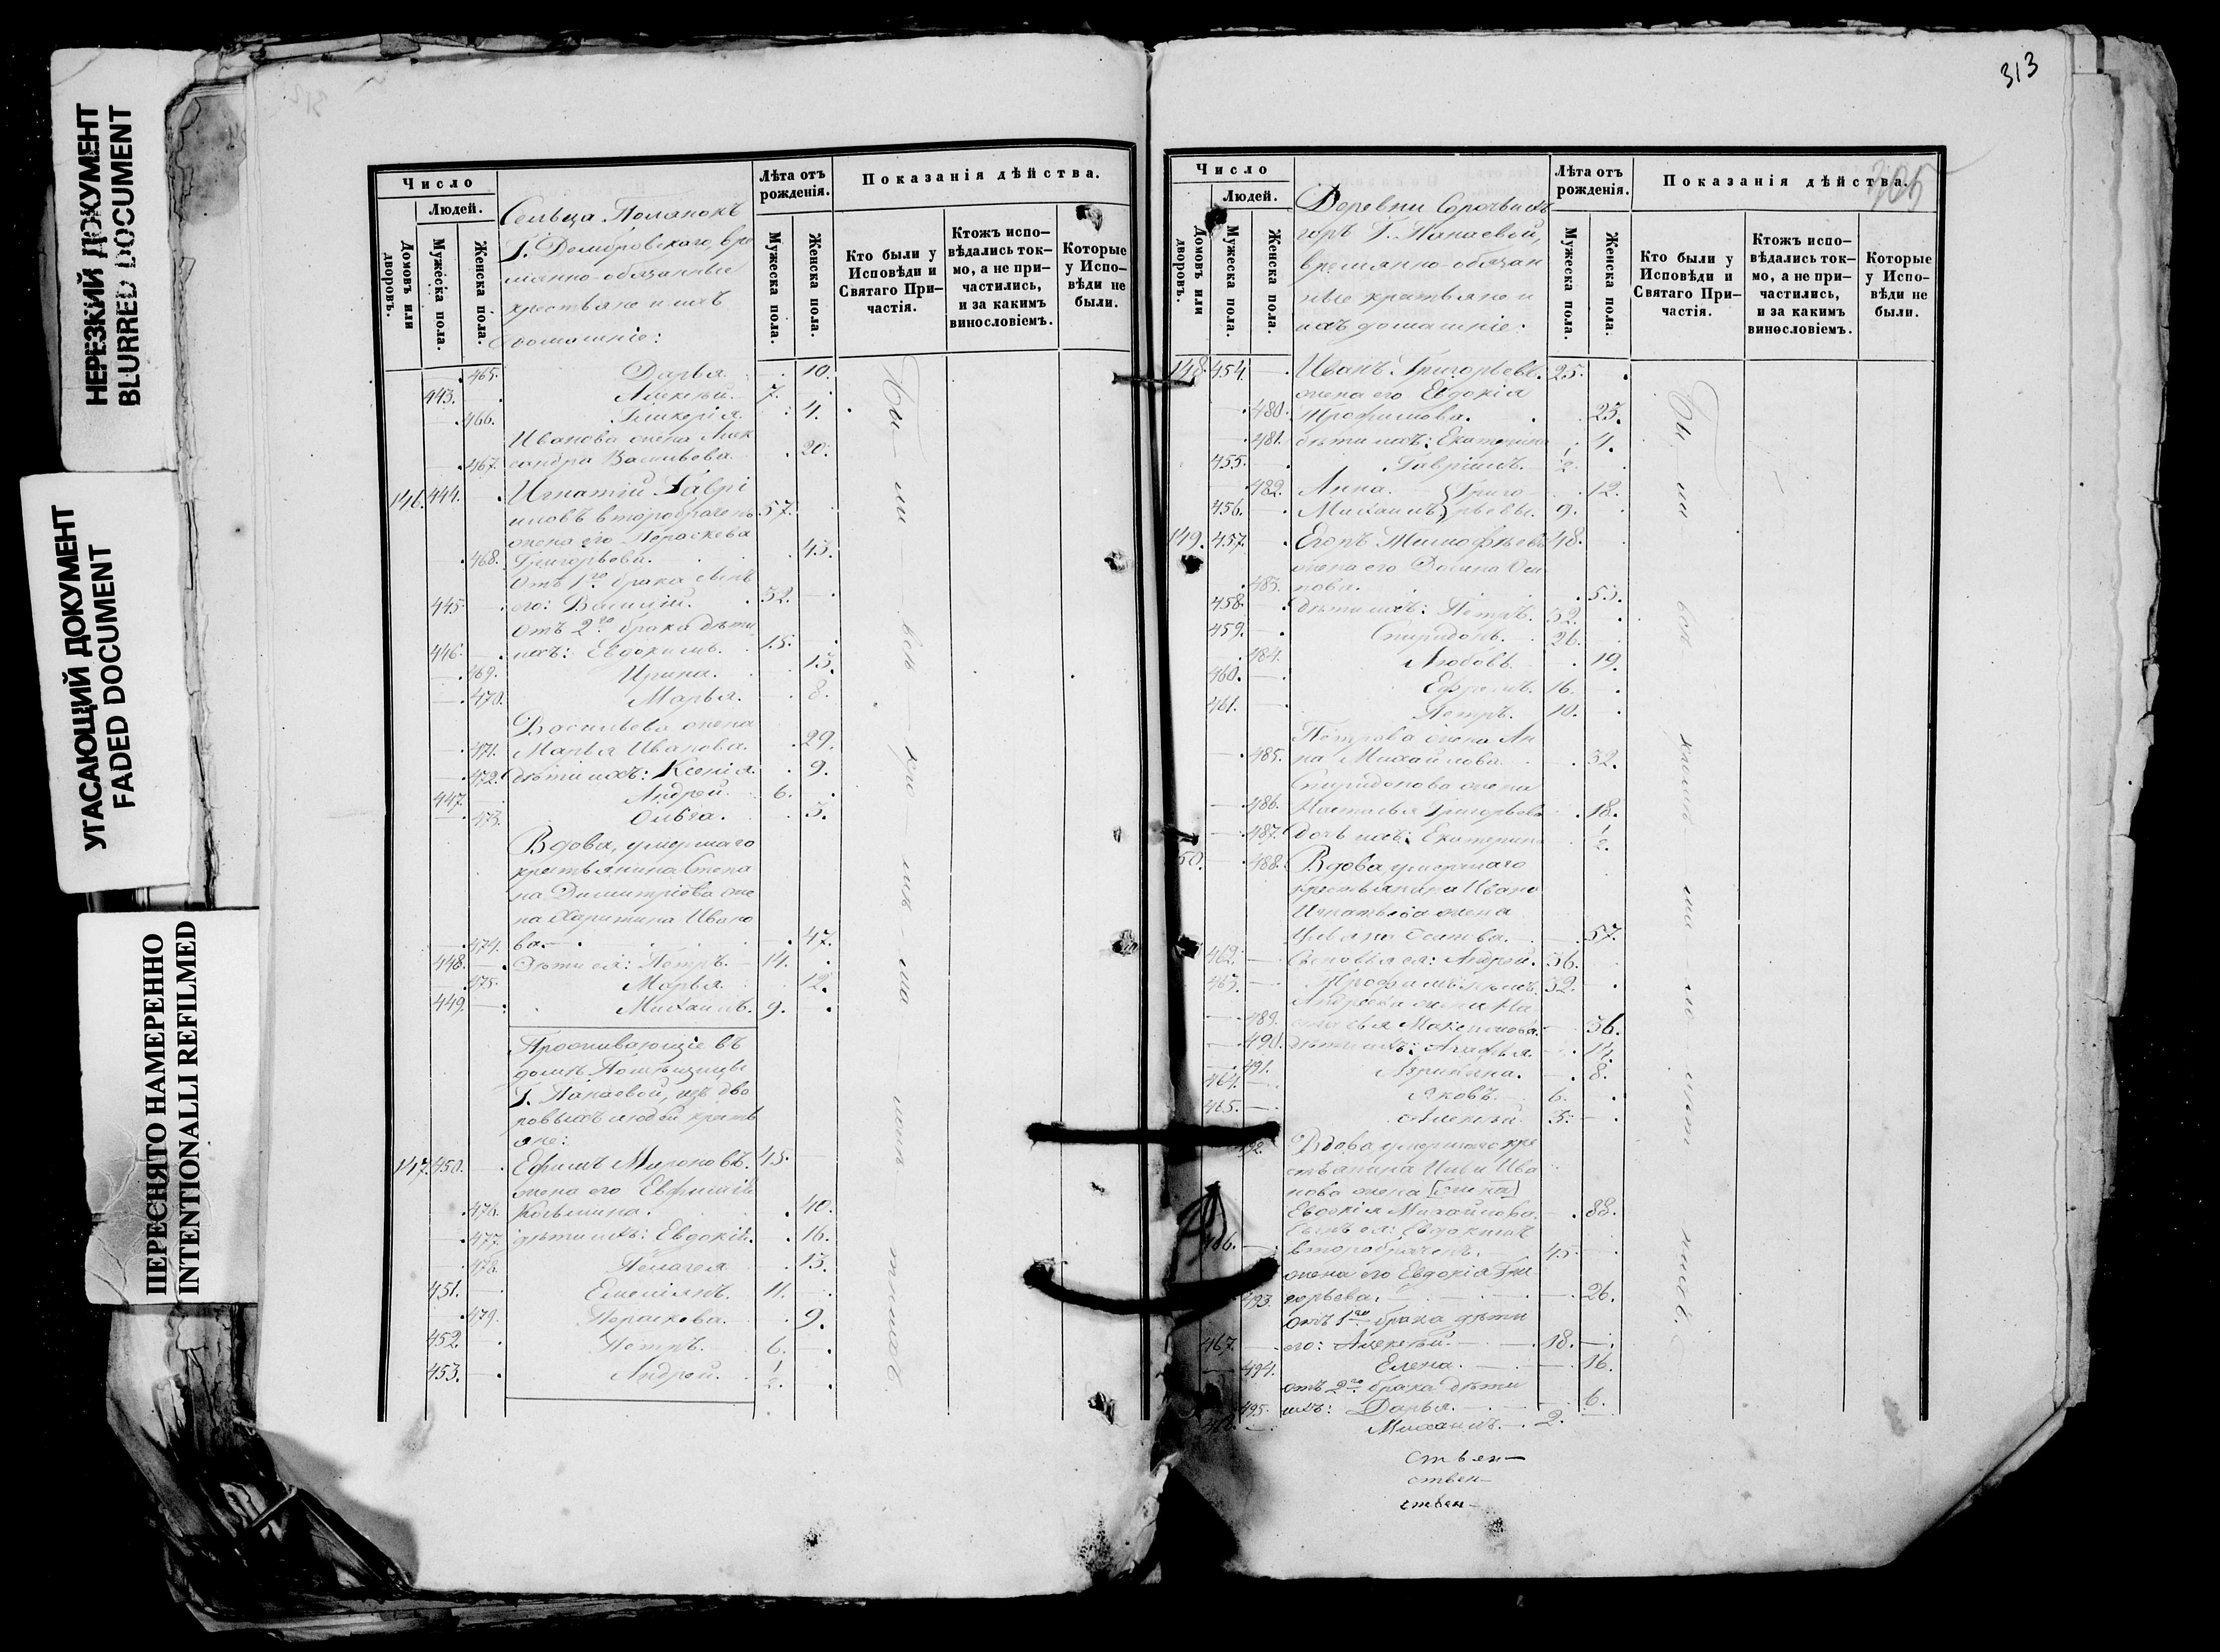 НЕРЕЗКИЙ ДОКУМЕНТ
BLURRED DOCUMENT
УГАСАЮЩИЙ ДОКУМЕНТ
FADED DOCUMENT
ПЕРЕСНЯТО НАМЕРЕННО
INTENTIONALLI REFILMED
Число
Людей.
Домовъ или дворовъ.
Мужеска пола.
Женска пола.
Сельца Полянокъ
Г. Домбровскаго, вре
мянно-обязанные
крестьяне и ихъ
домашніе:
Лѣта отъ рожденія.
Мужеска пола.
Женска пола.
Показанія дѣйства.
Кто были у Исповѣди и Святаго При-частія.
Ктожъ испо-вѣдались ток-мо, а не при-частились, и за какимъ винословіемъ.
Которые у Испо-вѣди не были.
465. Дарья. 10.
443. Алексѣй. 7.
466. Гликерія. 4.
Иванова жена Алек
467. сандра Васильева. 20.
146. 444. Игнатій Гаври
иловъ второбраченъ 57.
жена его Параскева
468. Григорьева. 43.
Отъ 1го брака сынъ
445. его: Василій. 32.
Отъ 2го брака дѣти
446. ихъ: Евдокимъ. 15.
469. Ирина. 13.
470. Марья. 8.
Васильева жена
471. Марья Иванова. 29.
472. дѣти ихъ: Ксенія. 9.
447. Андрей. 6.
473. Ольга. 3.
Вдова, умершаго
крестьянина Степа
на Димитріева же
на Харитина Ивано
474. ва. 47.
448. Дѣти ея: Петръ. 14.
475. Марья. 12.
449. Михаилъ. 9.
Проживающіе въ
домѣ Помѣщицы
Г. Папаевой, изъ дво
ровыхъ людей кресть
яне:
147. 450. Ефимъ Мироновъ. 45.
жена его Евфимія
476. Козьмина. 40.
477. дѣти ихъ: Евдокія. 16.
478. Пелагея 13.
451. Емеліанъ. 11.
479. Параскева. 9.
452. Петръ. 6.
453. Андрей. 1/2.
313
305
Число
Людей.
Домовъ или дворовъ.
Мужеска пола.
Женска пола.
Деревни
горъ Г. Папаевой,
времянно-обязан
ные крестьяне и
ихъ домашніе:
Лѣта отъ рожденія.
Мужеска пола.
Женска пола.
Показанія дѣйства.
Кто были у Исповѣди и Святаго При-частія.
Ктожъ испо-вѣдались ток-мо, а не при-частились, и за какимъ винословіемъ.
Которые у Испо-вѣди не были.
148. 454. Иванъ Григорьевъ. 25.
жена его Евдокія
480. Трофимова. 23.
481. дѣти ихъ: Екатерина 4.
455. Гавріилъ. 1/2.
482. Анна. Григо 12.
456. Михаилъ рьевы. 9.
149. 457. Егоръ Тимофѣевъ 48.
жена его Оси
483. пова. 53.
458. дѣти ихъ: Петръ. 32.
459. Спиридонъ. 26.
484. Любовь. 19.
460. Ефремъ. 16.
461. Петръ. 10.
Петрова жена Ан
485. на Михайлова. 32.
Спиридонова жена
486. Наталья Григорьева 18.
487. дочь ихъ: Екатерина 1/2.
150. 488. Вдова умершаго
крестьянина Ивана
Игнатьева жена
57.
462. Сыновья ея: Андрей. 36.
463. 32.
Андреева жена На
489. талья Максимова. 36.
490. дѣти ихъ: Агафья. 14.
491. 8.
464. Яковъ. 6.
465. Алексѣй. 3.
492. Вдова умершаго кре
стьянина Ильи Ива
нова жена
Евдокія Михайлова. 88.
сынъ ея: Евдокимъ
466. второбраченъ. 45.
жена его Евдокія Гри
493. горьева. 26.
отъ 1го брака дѣти
467. его: Алексѣй. 18.
494. Елена. 16.
отъ 2го брака дѣти
495. ихъ: Дарья. 6.
468. Михаилъ. 2.
ствен-
ствен-
ствен-